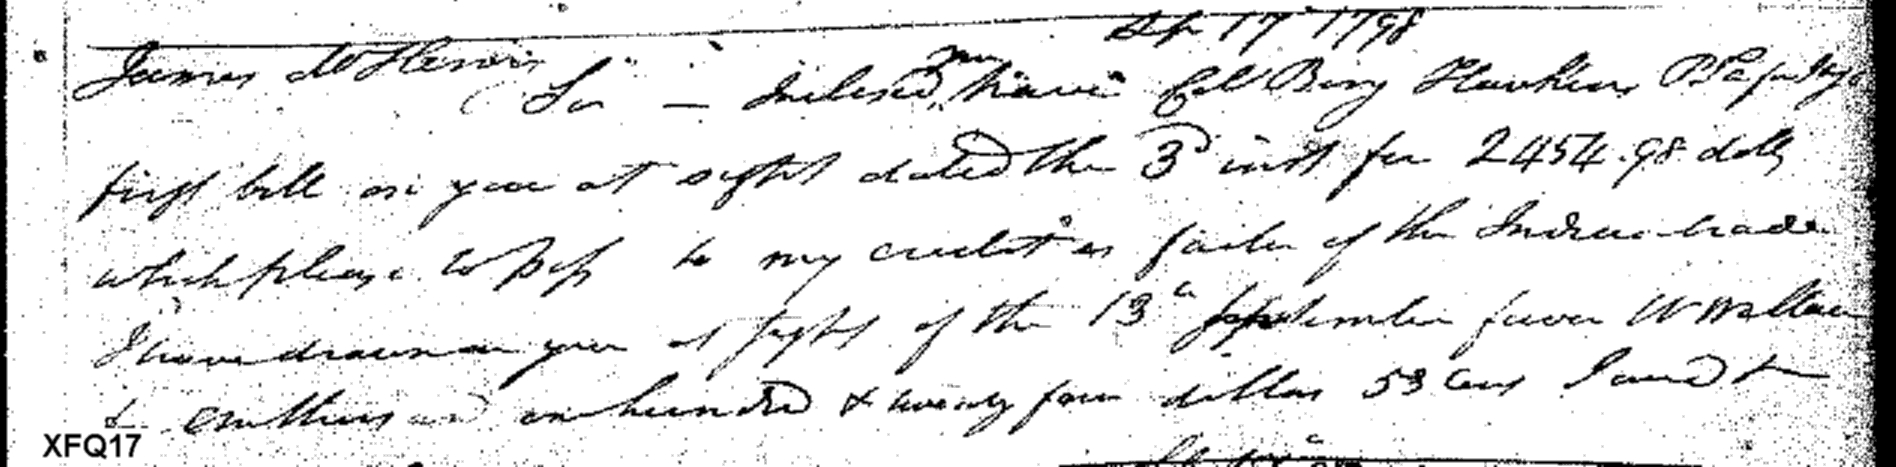 Sep 17 1798
James McHenry
Sir — Inclosed you have Col Benj Hawkins P T a for Ind
first bill on you at sight dated the 3d inst for 2454.98 dolls
which please to pass to my credit as factor of the Indian trade
I have drawn on you at sight of the 13th September favor W Wallace
& one thousand one hundred & twenty four dollars 53 Cents
XFQ17